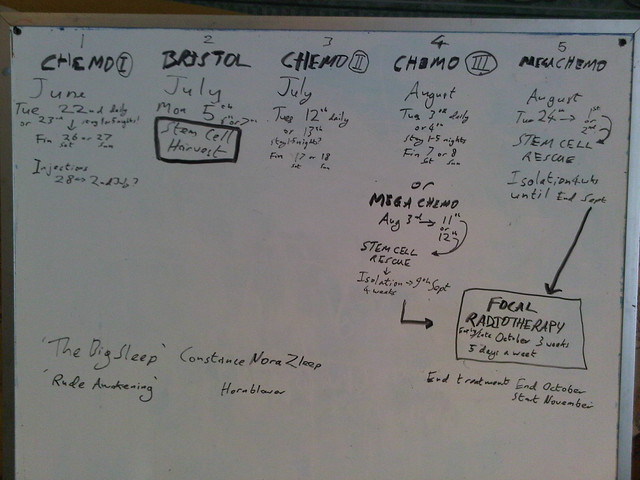 1
CHEMO I
June
Tue 22nd daily
or 23rd stay 1-5 nights?
Fin 26 or 27
Sat Sun
Injections
28 → 2nd July?
2
BRISTOL
July
Mon 5th
6th or 7th
Stem Cell
Harvest
3
CHEMO II
July
Tues 12th daily
or 13th
stay 1-5 nights?
Fin 17 or 18
Sat Sun
4
CHEMO III
August
Tue 3rd daily
or 4th
stay 1-5 nights
Fin 7 or 8
Sat Sun
or
MEGA CHEMO
Aug 3rd → 11th
or
12th
STEM CELL
RESCUE
Isolation → 9th Sept
4 weeks
5
MEGACHEMO
August
Tue 24th → 1st
or
2nd
STEM CELL
RESCUE
Isolation 4wks
until End Sept
FOCAL
RADIOTHERAPY
Early/late October 3 weeks
5 days a week
End treatment End October
Start November
'The Big Sleep' Constance Nora Zleep
'Rude Awakening' Hornblower